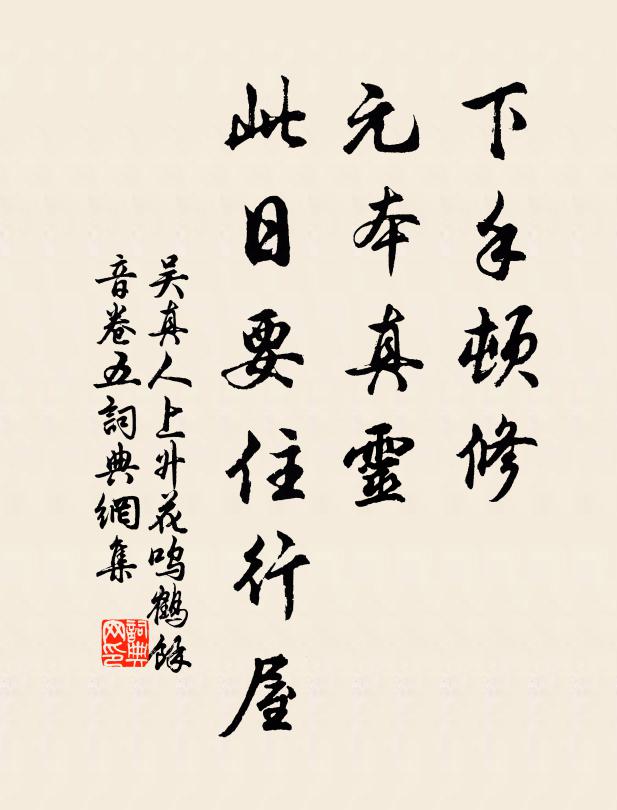 下手頓修
元本真靈
此日要住行屋
吳真人上升花鳴鶴餘
音卷五詞典網集
詞典
網印